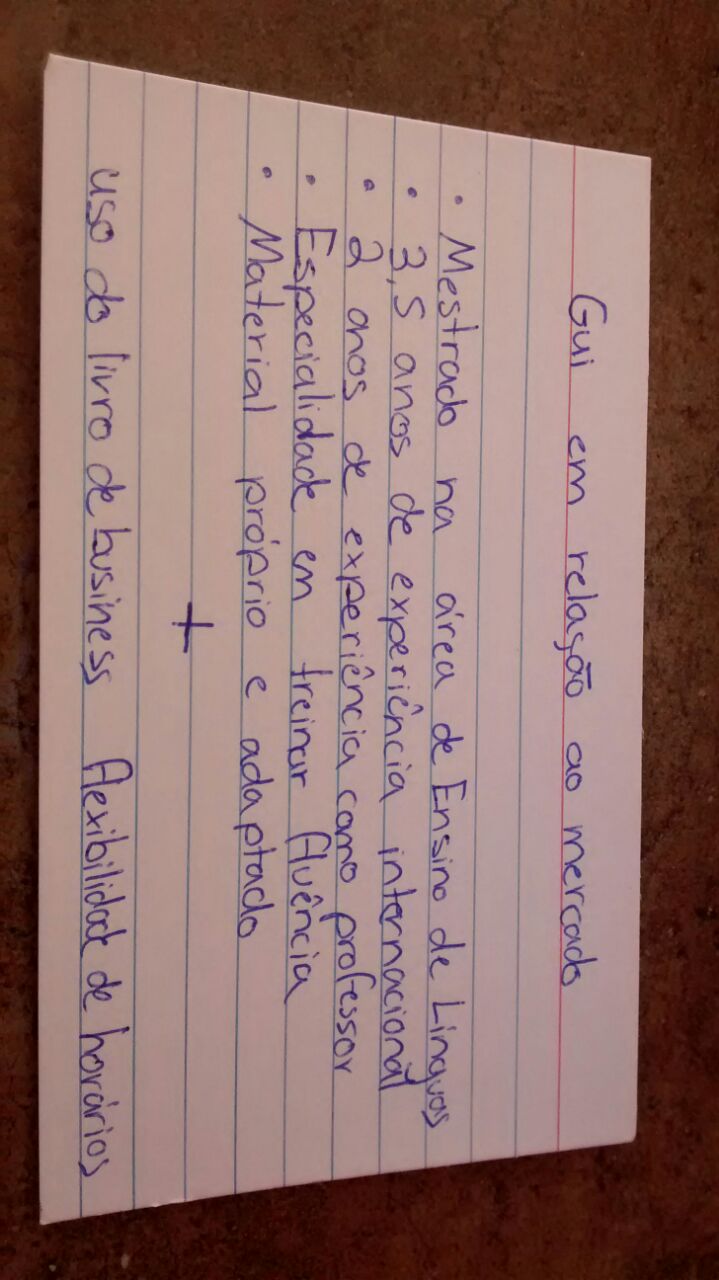 Gui em relação ao mercado
• Mestrado na área de Ensino de Línguas
• 3,5 anos de experiência internacional
• 2 anos de experiência como professor
• Especialidade em treinar fluência
• Material próprio e adaptado
+
uso do livro de business flexibilidade de horários